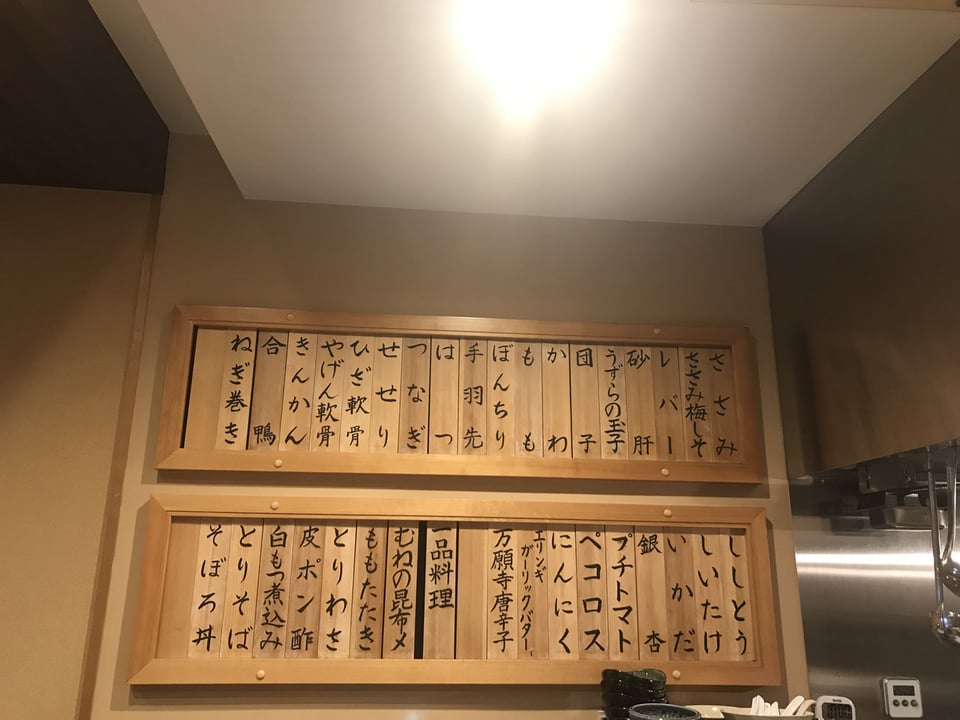 ささみ
ささみ梅しそ
レバー
砂肝
うずらの玉子
団子
かわ
もも
ぼんちり
手羽先
はつ
つなぎ
せせり
ひざ軟骨
やげん軟骨
きんかん
合鴨
ねぎ巻き
ししとう
しいたけ
いかだ
銀杏
プチトマト
ペコロス
にんにく
エリンギ
ガーリックバター
万願寺唐辛子
一品料理
むねの昆布〆
ももたたき
とりわさ
皮ポン酢
白もつ煮込み
とりそば
そぼろ丼